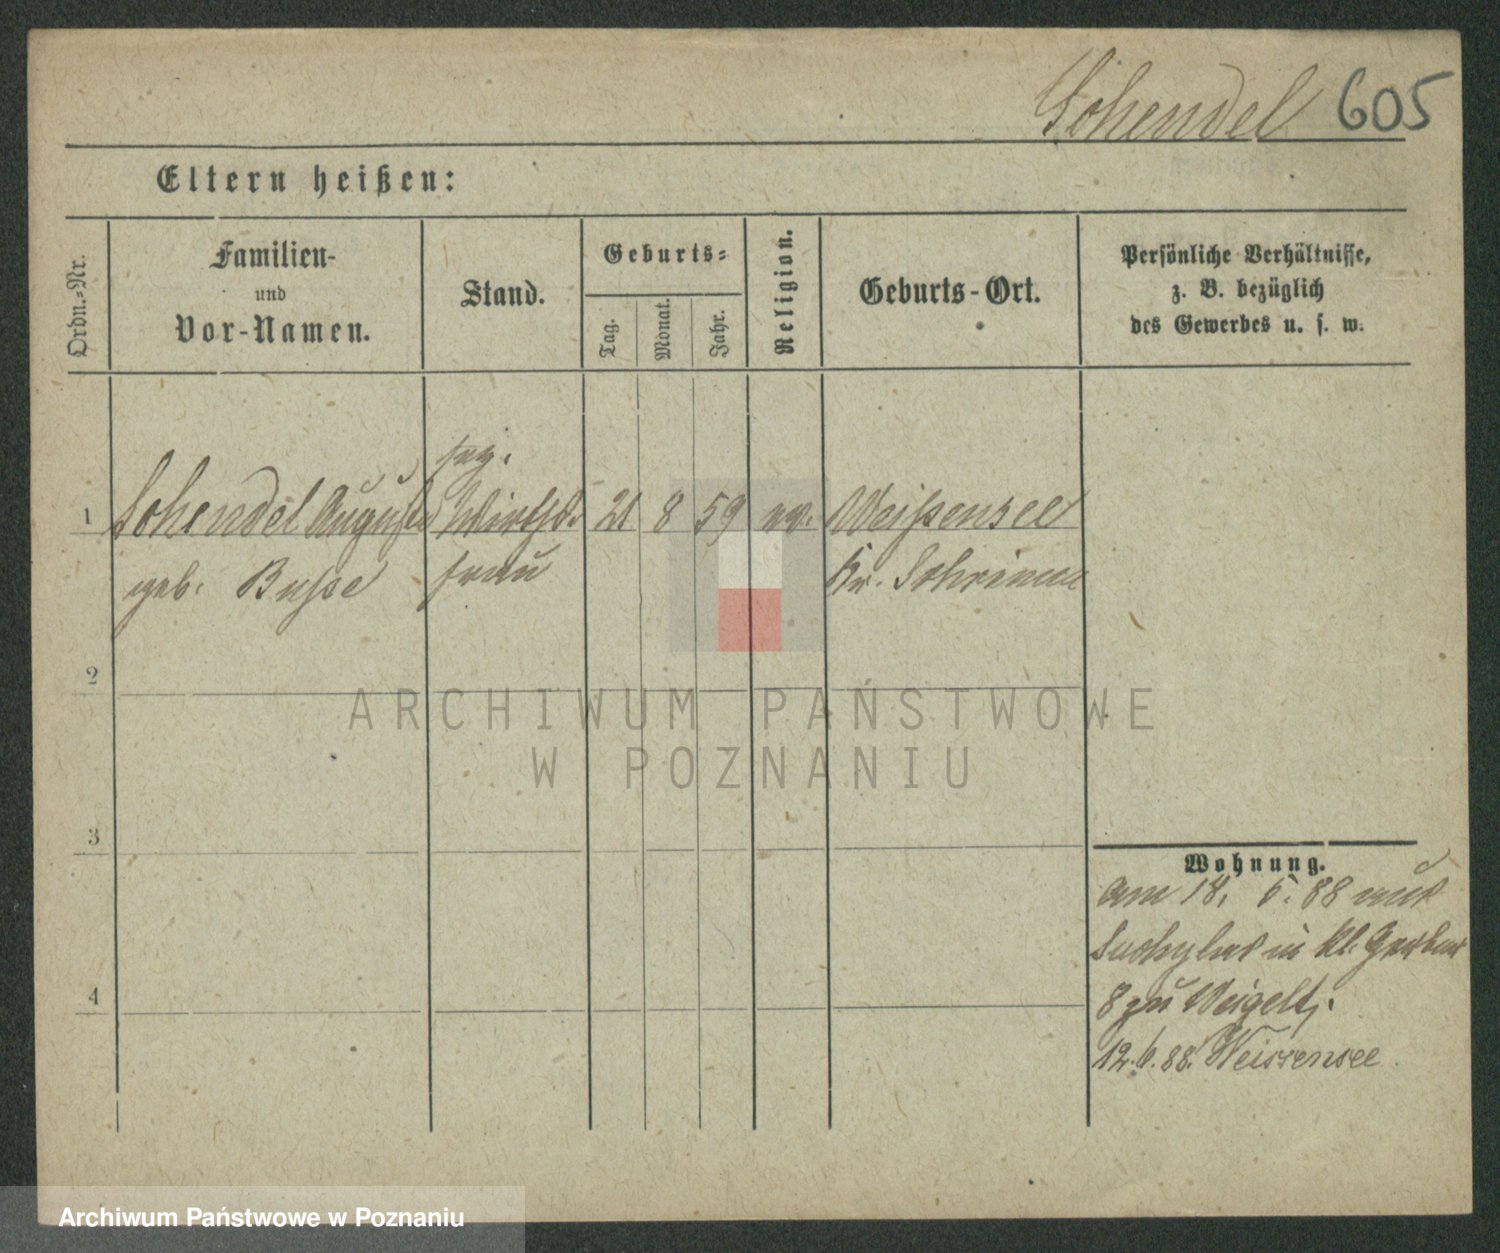 Schendel 605
Eltern heißen:
Ordn.-Nr.
Familien-
und
Vor-Namen.
Stand.
Geburts-
Tag.
Monat.
Jahr.
Religion.
Geburts-Ort.
Persönliche Verhältnisse,
z. B. bezüglich
des Gewerbes u. s. w.
1 Schendel Auguste Wirths. 21 8 59 ev. Weißensee
geb. Busse frau Kr. Schrimm
2
3
4
Wohnung.
am 18. 5. 88 aus
in Kl. Gerber
8 zu Weigelt.
12.6.88. Weissensee.
ARCHIWUM PAŃSTWOWE
W POZNANIU
Archiwum Państwowe w Poznaniu